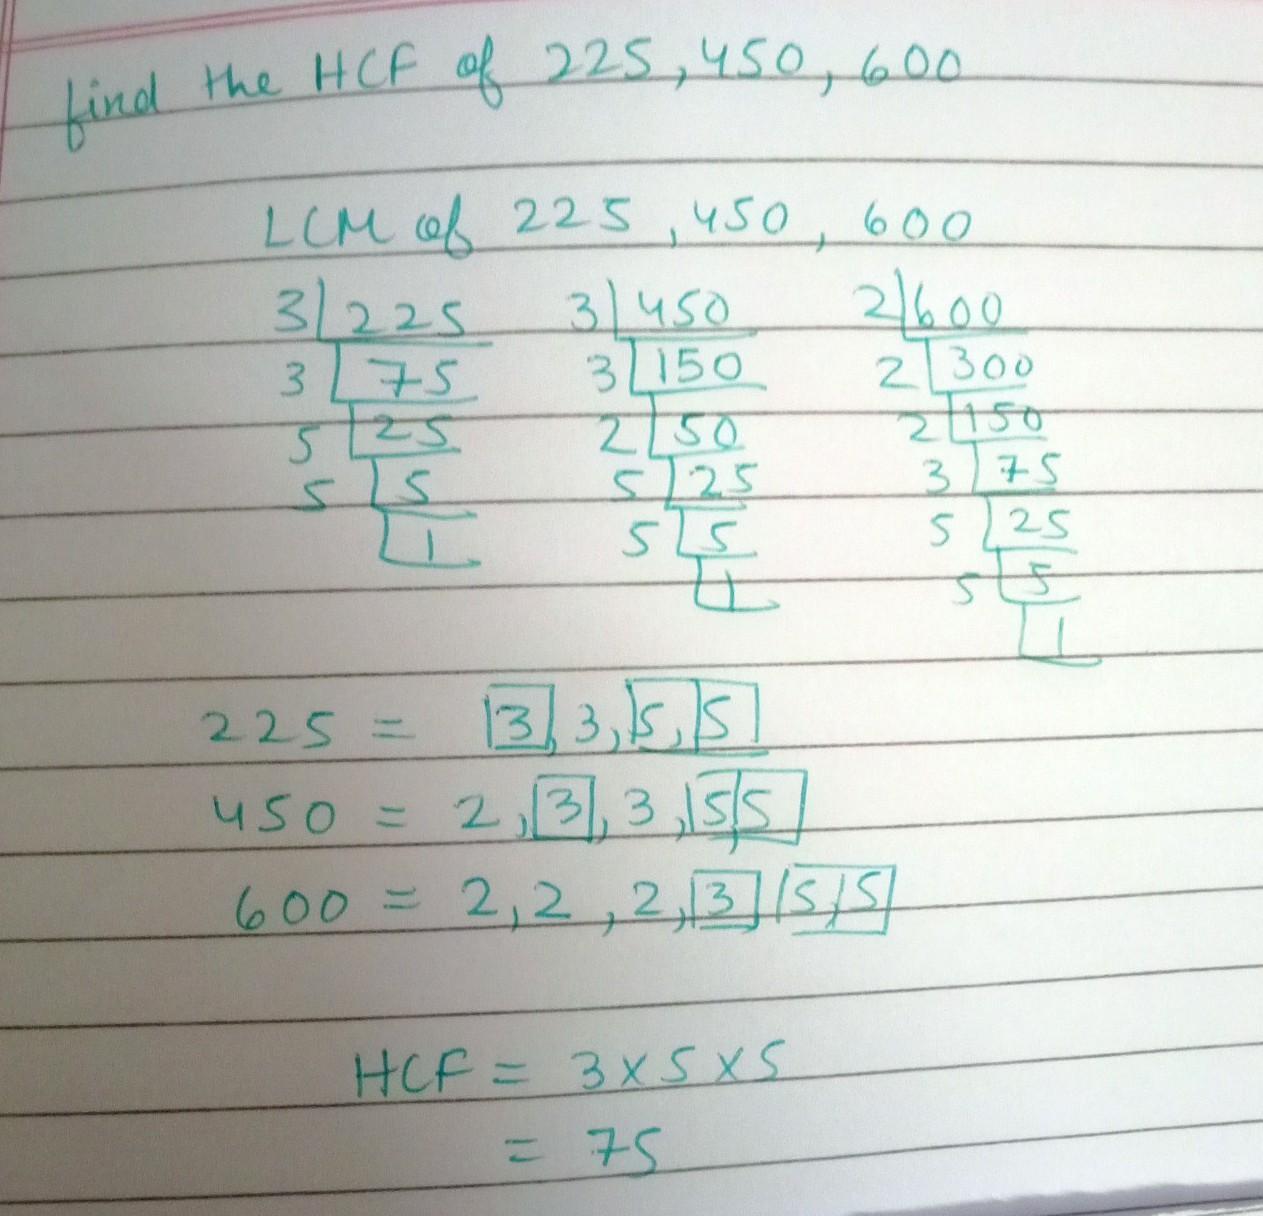 find the HCF of 225, 450, 600
LCM of 225, 450, 600
3 225 3 450 2 600
3 75 3 150 2 300
5 25 2 50 2 150
5 5 5 25 3 75
1 5 5 5 25
1 5 5
1
225 = 3, 3, 5, 5
450 = 2, 3, 3, 5, 5
600 = 2, 2, 2, 3, 5, 5
HCF = 3 x 5 x 5
= 75